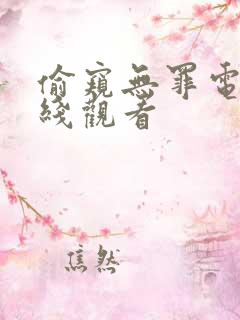 偷窺無罪電
綫觀看
焦然